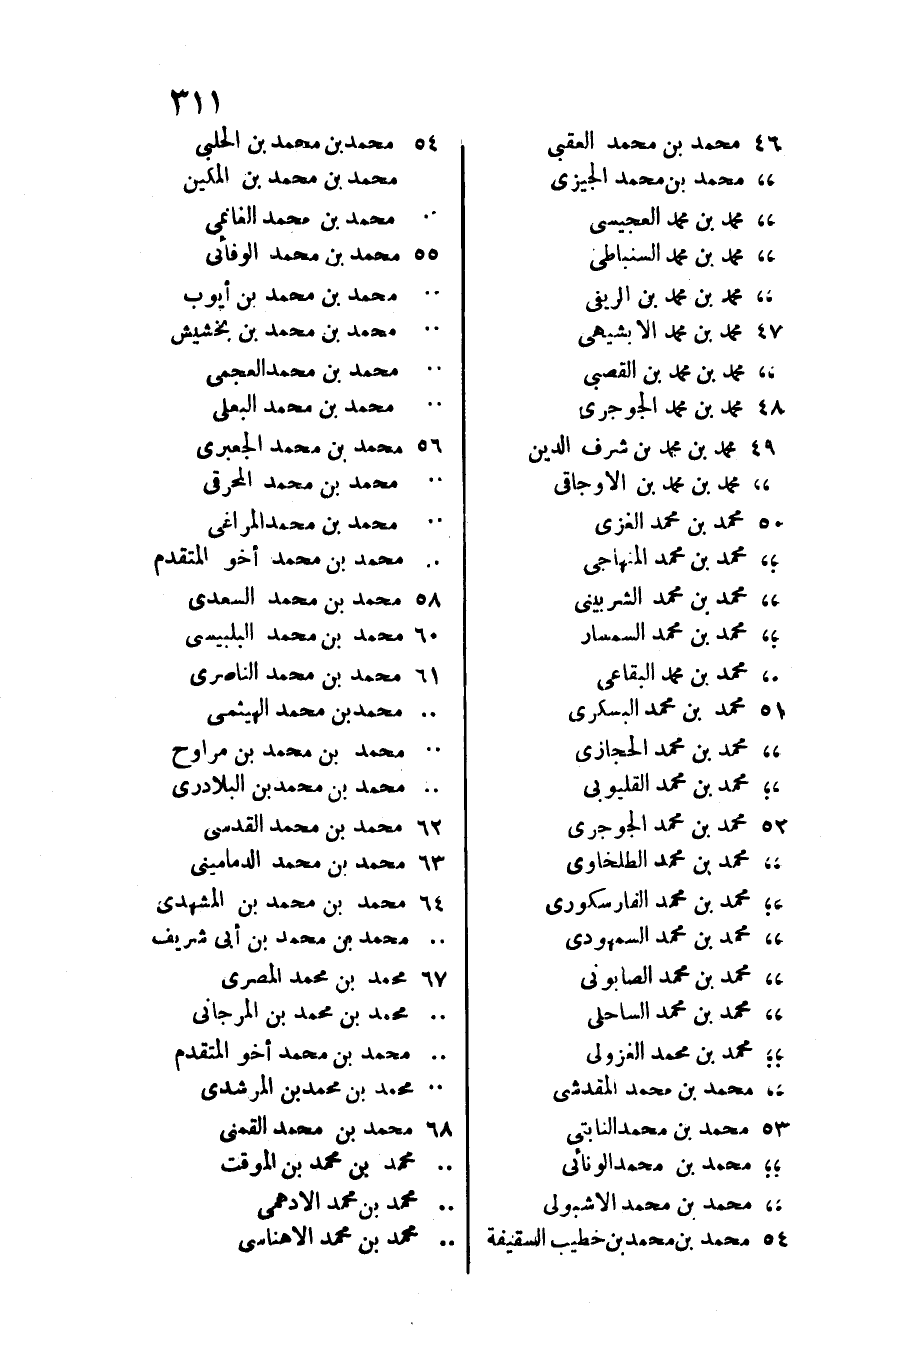 ٣١١
٤٦ محمد بن محمد العقبى
،، محمد بن محمد الجيزى
،، محمد بن محمد العجيسى
،، محمد بن محمد السنباطى
،، محمد بن محمد بن الريفى
٤٧ محمد بن محمد الابشيهى
،، محمد بن محمد بن القصبى
٤٨ محمد بن محمد الجوجرى
٤٩ محمد بن محمد بن شرف الدين
،، محمد بن محمد بن الاوجاقى
٥٠ محمد بن محمد الغزى
،، محمد بن محمد المنهاجى
،، محمد بن محمد الشربينى
،، محمد بن محمد السمسار
،، محمد بن محمد البقاعى
٥١ محمد بن محمد البسكرى
،، محمد بن محمد الحجازى
،، محمد بن محمد القليوبى
٥٢ محمد بن محمد الجوجرى
،، محمد بن محمد الطلخاوى
،، محمد بن محمد الفارسكورى
،، محمد بن محمد السمهودى
،، محمد بن محمد الصابونى
،، محمد بن محمد الساحلى
،، محمد بن محمد الغزولى
،، محمد بن محمد المقدشى
٥٣ محمد بن محمد النابتى
،، محمد بن محمد الونائى
،، محمد بن محمد الاشبولى
٥٤ محمد بن محمد بن خطيب السقيفة
٥٤ محمد بن محمد بن الحلبى
محمد بن محمد بن المكين
٠٠ محمد بن محمد الغانمى
٥٥ محمد بن محمد الوفائى
٠٠ محمد بن محمد بن أيوب
٠٠ محمد بن محمد بن بخشيش
٠٠ محمد بن محمد العجمى
٠٠ محمد بن محمد البعلى
٥٦ محمد بن محمد الجعبرى
٠٠ محمد بن محمد المحرقى
٠٠ محمد بن محمد المراغى
٠٠ محمد بن محمد أخو المتقدم
٥٨ محمد بن محمد السعدى
٦٠ محمد بن محمد البلبيسى
٦١ محمد بن محمد الناصرى
٠٠ محمد بن محمد الهيثمى
٠٠ محمد بن محمد بن مراوح
٠٠ محمد بن محمد بن البلادرى
٦٢ محمد بن محمد القدسى
٦٣ محمد بن محمد الدمامينى
٦٤ محمد بن محمد بن المشهدى
٠٠ محمد بن محمد بن أبى شريف
٦٧ محمد بن محمد المصرى
٠٠ محمد بن محمد بن المرجانى
٠٠ محمد بن محمد أخو المتقدم
٠٠ محمد بن محمد بن المرشدى
٦٨ محمد بن محمد القمنى
٠٠ محمد بن محمد بن الموقت
٠٠ محمد بن محمد الادهمى
٠٠ محمد بن محمد الاهناسى